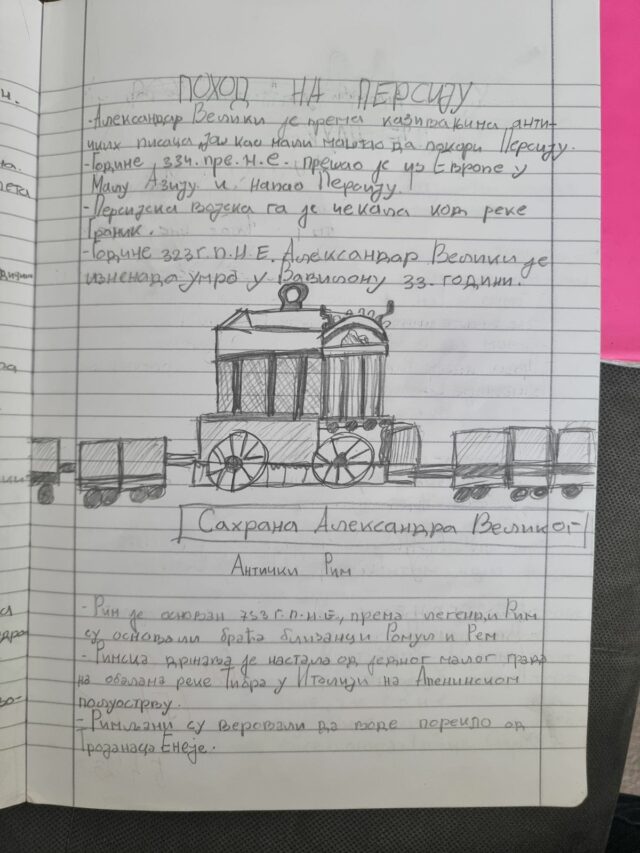 ПОХОД НА ПЕРСИЈУ
-Александар Велики је према казивањима анти-
чких писаца још као мали маштао да покори Персију.
-Године 334. пре. н.е. прешао је из Европе у
Малу Азију и напао Персију.
-Персијска војска га је чекала код реке
Граник.
-Године 323 г.п.н.е. Александар Велики је
изненада умро у Вавилону 33. години.
Сахрана Александра Великог
Антички Рим
-Рим је основан 753 г.п.н.е., према легенди Рим
су основали браћа близанци Ромул и Рем
-Римска држава је настала од једног малог града
на обалама реке Тибра у Италији на Апенинском
полуострву.
-Римљани су веровали да воде порекло од
Тројанаца Енеје.